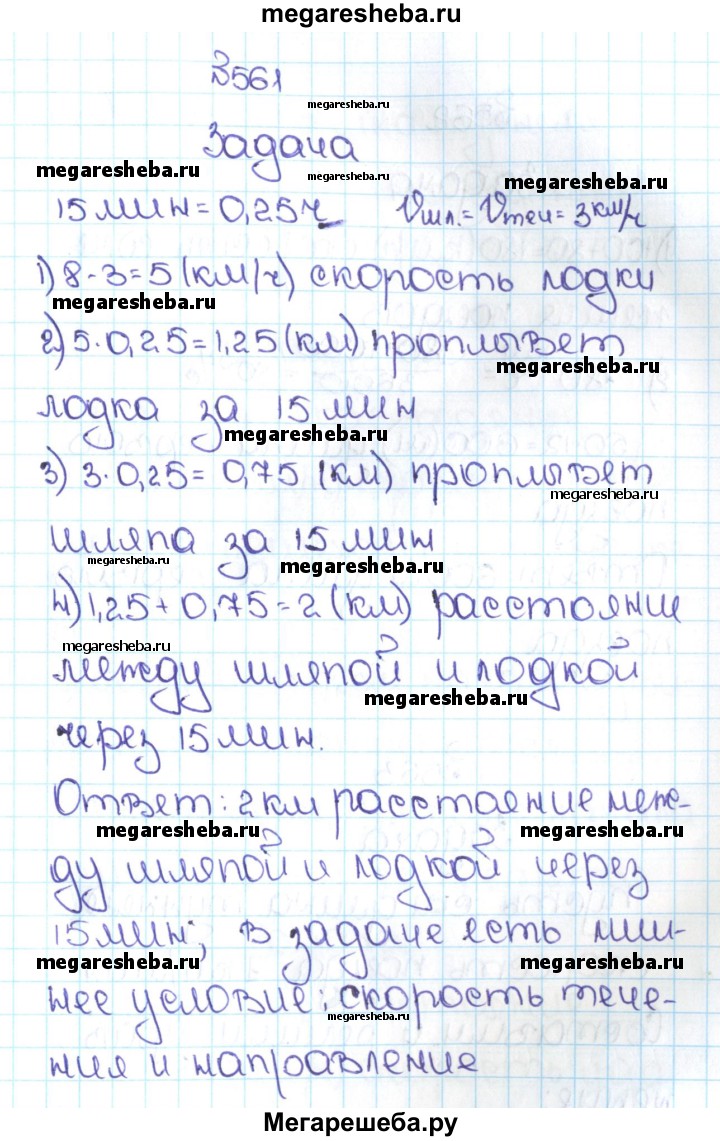 megaresheba.ru
№561
megaresheba.ru
Задача
megaresheba.ru
megaresheba.ru
megaresheba.ru
15 мин = 0,25 ч Vшл. = Vтеч = 3 км/ч
1) 8 - 3 = 5 (км/ч) скорость лодки
megaresheba.ru
2) 5 · 0,25 = 1,25 (км) проплывет
megaresheba.ru
лодка за 15 мин
megaresheba.ru
3) 3 · 0,25 = 0,75 (км) проплывет
megaresheba.ru
шляпа за 15 мин
megaresheba.ru
megaresheba.ru
4) 1,25 + 0,75 = 2 (км) расстояние
megaresheba.ru
между шляпой и лодкой
megaresheba.ru
через 15 мин.
Ответ: 2 км расстаяние меж-
megaresheba.ru
megaresheba.ru
ду шляпой и лодкой через
15 мин; в задаче есть лиш-
megaresheba.ru
megaresheba.ru
нее условие: скорость тече-
megaresheba.ru
ния и направление
Мегарешеба.ру